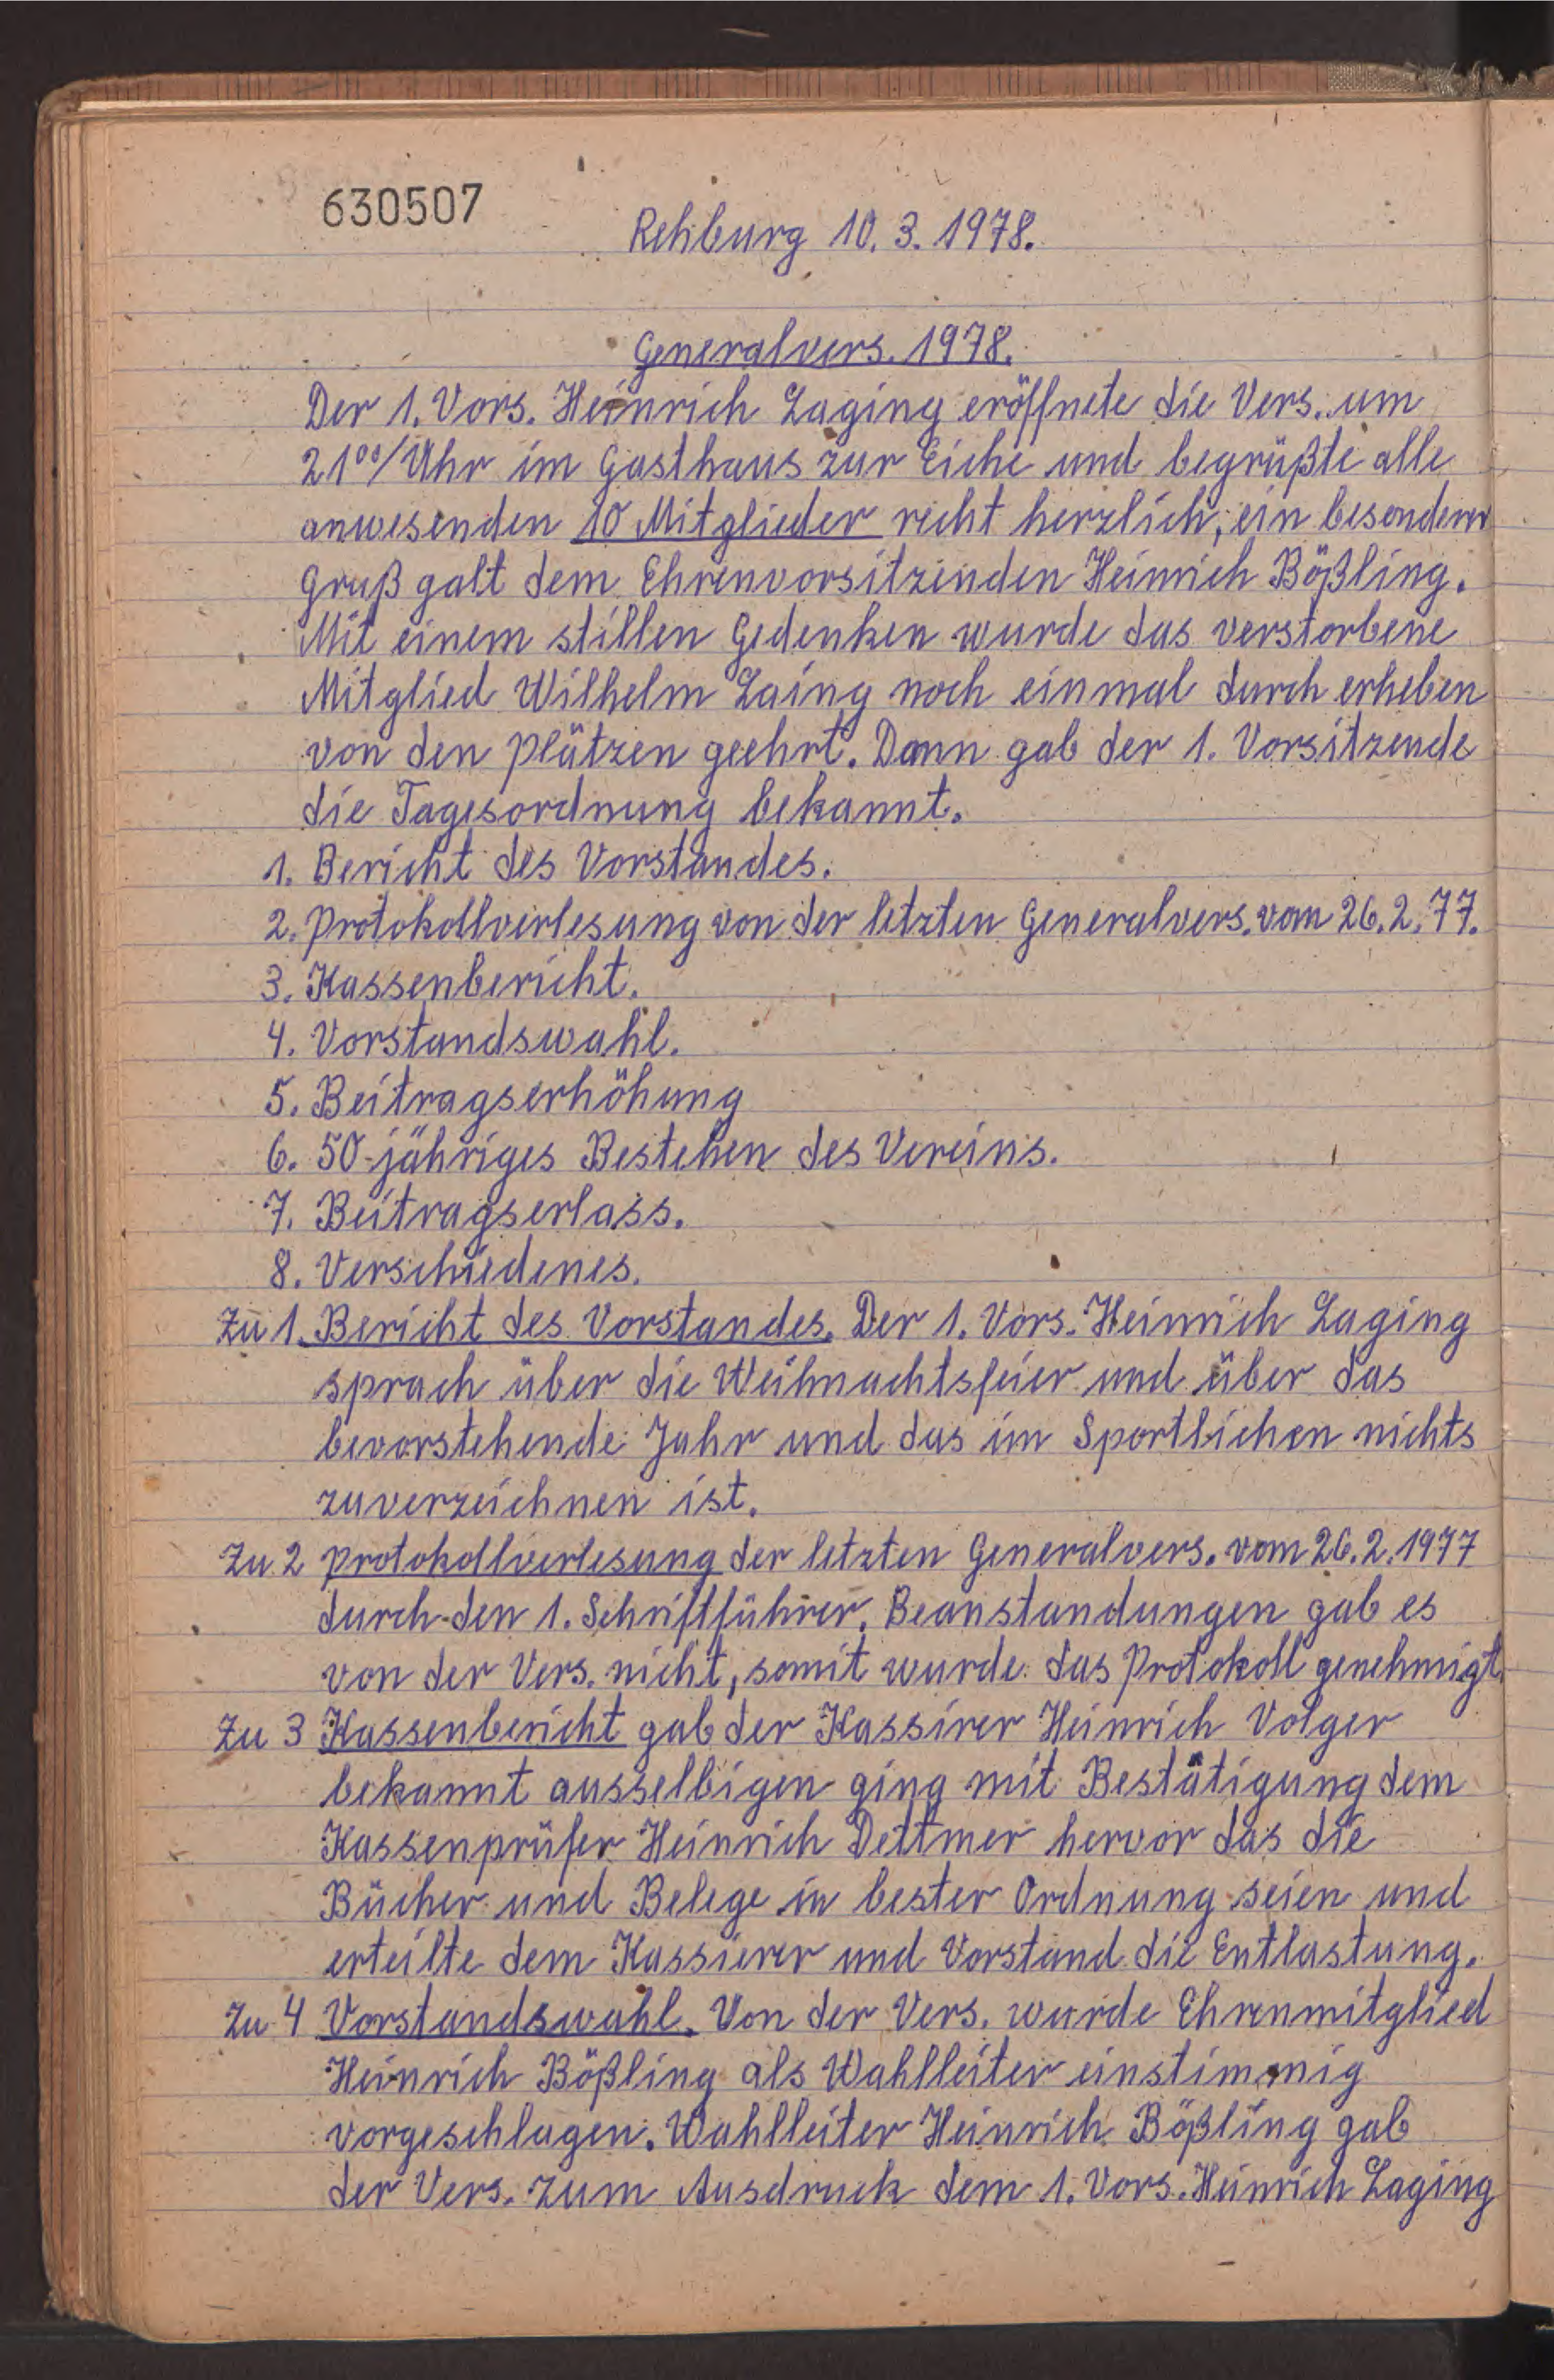 630507
Rehburg 10. 3. 1978.
Generalvers. 1978.
Der 1. Vors. Heinrich Laging eröffnete die Vers. um
21⁰⁰/Uhr im Gasthaus zur Eiche und begrüßte alle
anwesenden 10 Mitglieder recht herzlich, ein besonderer
Gruß galt dem Ehrenvorsitzenden Heinrich Bößling.
Mit einem stillen Gedenken wurde das verstorbene
Mitglied Wilhelm Laing noch einmal durch erheben
von den Plätzen geehrt. Dann gab der 1. Vorsitzende
die Tagesordnung bekannt.
1. Bericht des Vorstandes.
2. Protokollverlesung von der letzten Generalvers. vom 26.2.77.
3. Kassenbericht.
4. Vorstandswahl.
5. Beitragserhöhung
6. 50-jähriges Bestehen des Vereins.
7. Beitragserlass.
8. Verschiedenes.
Zu 1. Bericht des Vorstandes. Der 1. Vors. Heinrich Laging
sprach über die Weihnachtsfeier und über das
bevorstehende Jahr und das im Sportlichen nichts
zuverzeichnen ist.
Zu 2 Protokollverlesung der letzten Generalvers. vom 26.2.1977
durch den 1. Schriftführer. Beanstandungen gab es
von der Vers. nicht, somit wurde das Protokoll genehmigt.
Zu 3 Kassenbericht gab der Kassirer Heinrich Volger
bekannt ausselbigen ging mit Bestätigung dem
Kassenprüfer Heinrich Dettmer hervor das die
Bücher und Belege in bester Ordnung seien und
erteilte dem Kassierer und Vorstand die Entlastung.
Zu 4 Vorstandswahl. Von der Vers. wurde Ehrenmitglied
Heinrich Bößling als Wahlleiter einstimmig
vorgeschlagen. Wahlleiter Heinrich Bößling gab
der Vers. zum Ausdruck dem 1. Vors. Heinrich Laging